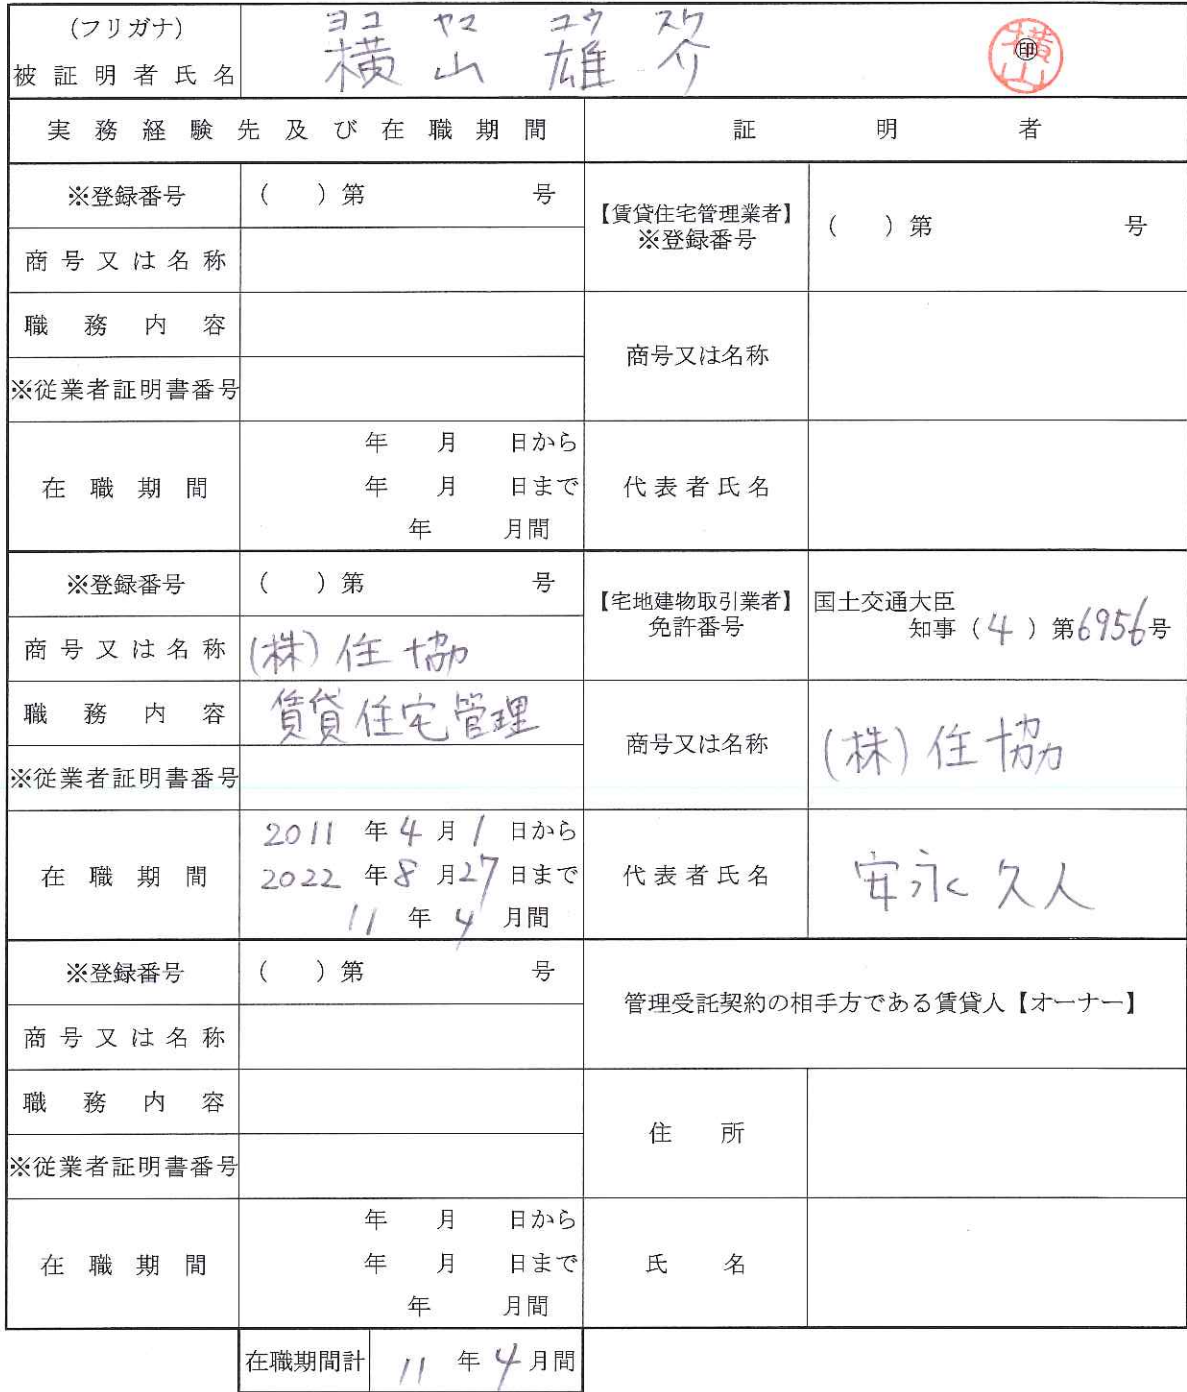 (フリガナ) ヨコ ヤマ ユウ スケ
被証明者氏名 横山 雄介 ㊞ 横山
実務経験先及び在職期間 証明者
※登録番号 ( )第 号
【賃貸住宅管理業者】
※登録番号 ( )第 号
商号又は名称
職務内容
商号又は名称
※従業者証明書番号
在職期間
年 月 日から
年 月 日まで
年 月間
代表者氏名
※登録番号 ( )第 号
【宅地建物取引業者】
免許番号
国土交通大臣
知事(4)第6956号
商号又は名称 (株)住協
職務内容 賃貸住宅管理
商号又は名称 (株)住協
※従業者証明書番号
在職期間
2011年4月1日から
2022年8月27日まで
11年4月間
代表者氏名 安永久人
※登録番号 ( )第 号
管理受託契約の相手方である賃貸人【オーナー】
商号又は名称
職務内容
住所
※従業者証明書番号
在職期間
年 月 日から
年 月 日まで
年 月間
氏名
在職期間計 11年4月間